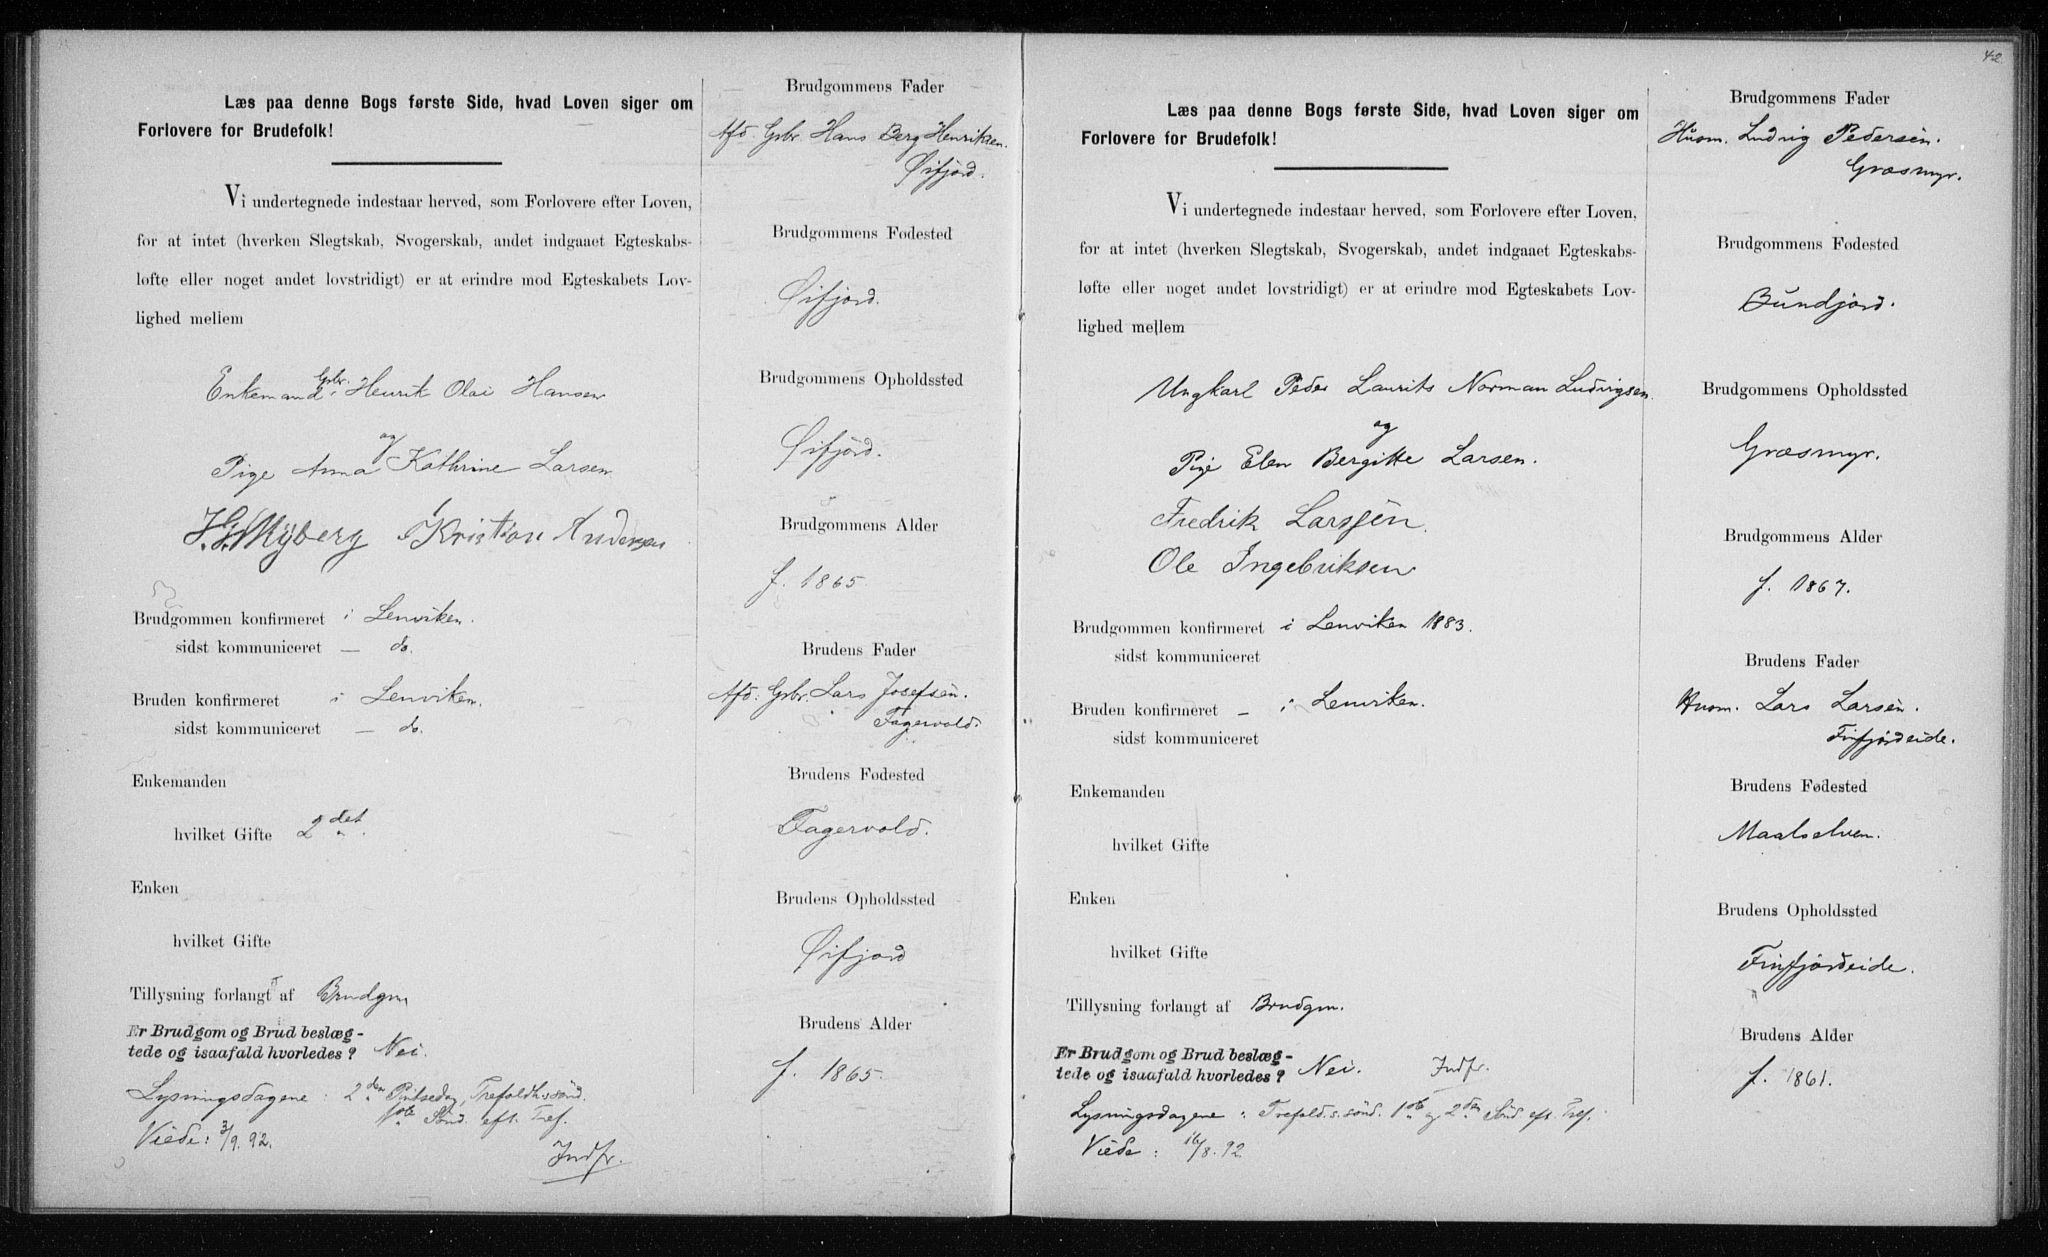 Læs paa denne Bogs første Side, hvad Loven siger om
Forlovere for Brudefolk!
Vi undertegnede indestaar herved, som Forlovere efter Loven,
for at intet (hverken Slegtskab, Svogerskab, andet indgaaet Egteskabs-
løfte eller noget andet lovstridigt) er at erindre mod Egteskabets Lov-
lighed mellem
Enkemand Gsbr. Henrik Olai Hansen
og
Pige Anna Kathrine Larsen
Kristian Andersen
Brudgommen konfirmeret i Lenviken.
sidst kommuniceret — do.
Bruden konfirmeret i Lenviken.
sidst kommuniceret — do.
Enkemanden
hvilket Gifte 2det.
Enken
hvilket Gifte
Tillysning forlangt af Brudgm
Er Brudgom og Brud beslæg-
tede og isaafald hvorledes? Nei.
Lysningsdagene: 2den Pintsedag, Trefoldh.sønd.
1ste Sønd. eft. Tref.
Viede: 3/9. 92.
Indfr.
Brudgommens Fader
Afd. Gsbr. Hans Berg Henriksen.
Øifjord.
Brudgommens Fødested
Øifjord.
Brudgommens Opholdssted
Øifjord.
Brudgommens Alder
f. 1865.
Brudens Fader
Afd. Gsbr. Lars Josefsen.
Fagervold.
Brudens Fødested
Fagervold.
Brudens Opholdssted
Øifjord
Brudens Alder
f. 1865.
42
Læs paa denne Bogs første Side, hvad Loven siger om
Forlovere for Brudefolk!
Vi undertegnede indestaar herved, som Forlovere efter Loven,
for at intet (hverken Slegtskab, Svogerskab, andet indgaaet Egteskabs-
løfte eller noget andet lovstridigt) er at erindre mod Egteskabets Lov-
lighed mellem
Ungkarl Peder Laurits Norman Ludvigsen.
og
Pige Elen Bergitte Larsen.
Fredrik Larssen.
Ole Ingebriksen
Brudgommen konfirmeret i Lenviken 1883.
sidst kommuniceret
Bruden konfirmeret — i Lenviken.
sidst kommuniceret
Enkemanden
hvilket Gifte
Enken
hvilket Gifte
Tillysning forlangt af Brudgm.
Er Brudgom og Brud beslæg-
tede og isaafald hvorledes? Nei. Indfr.
Lysningsdagene: Trefold.s.sønd. 1ste og 2den Sønd eft. Tref.
Viede: 16/8. 92
Brudgommens Fader
Husm. Ludvig Pedersen.
Græsmyr.
Brudgommens Fødested
Bundjord.
Brudgommens Opholdssted
Græsmyr.
Brudgommens Alder
f. 1867.
Brudens Fader
Husm. Lars Larsen.
Finfjordeide.
Brudens Fødested
Maalselven.
Brudens Opholdssted
Finfjordeide.
Brudens Alder
f. 1861.